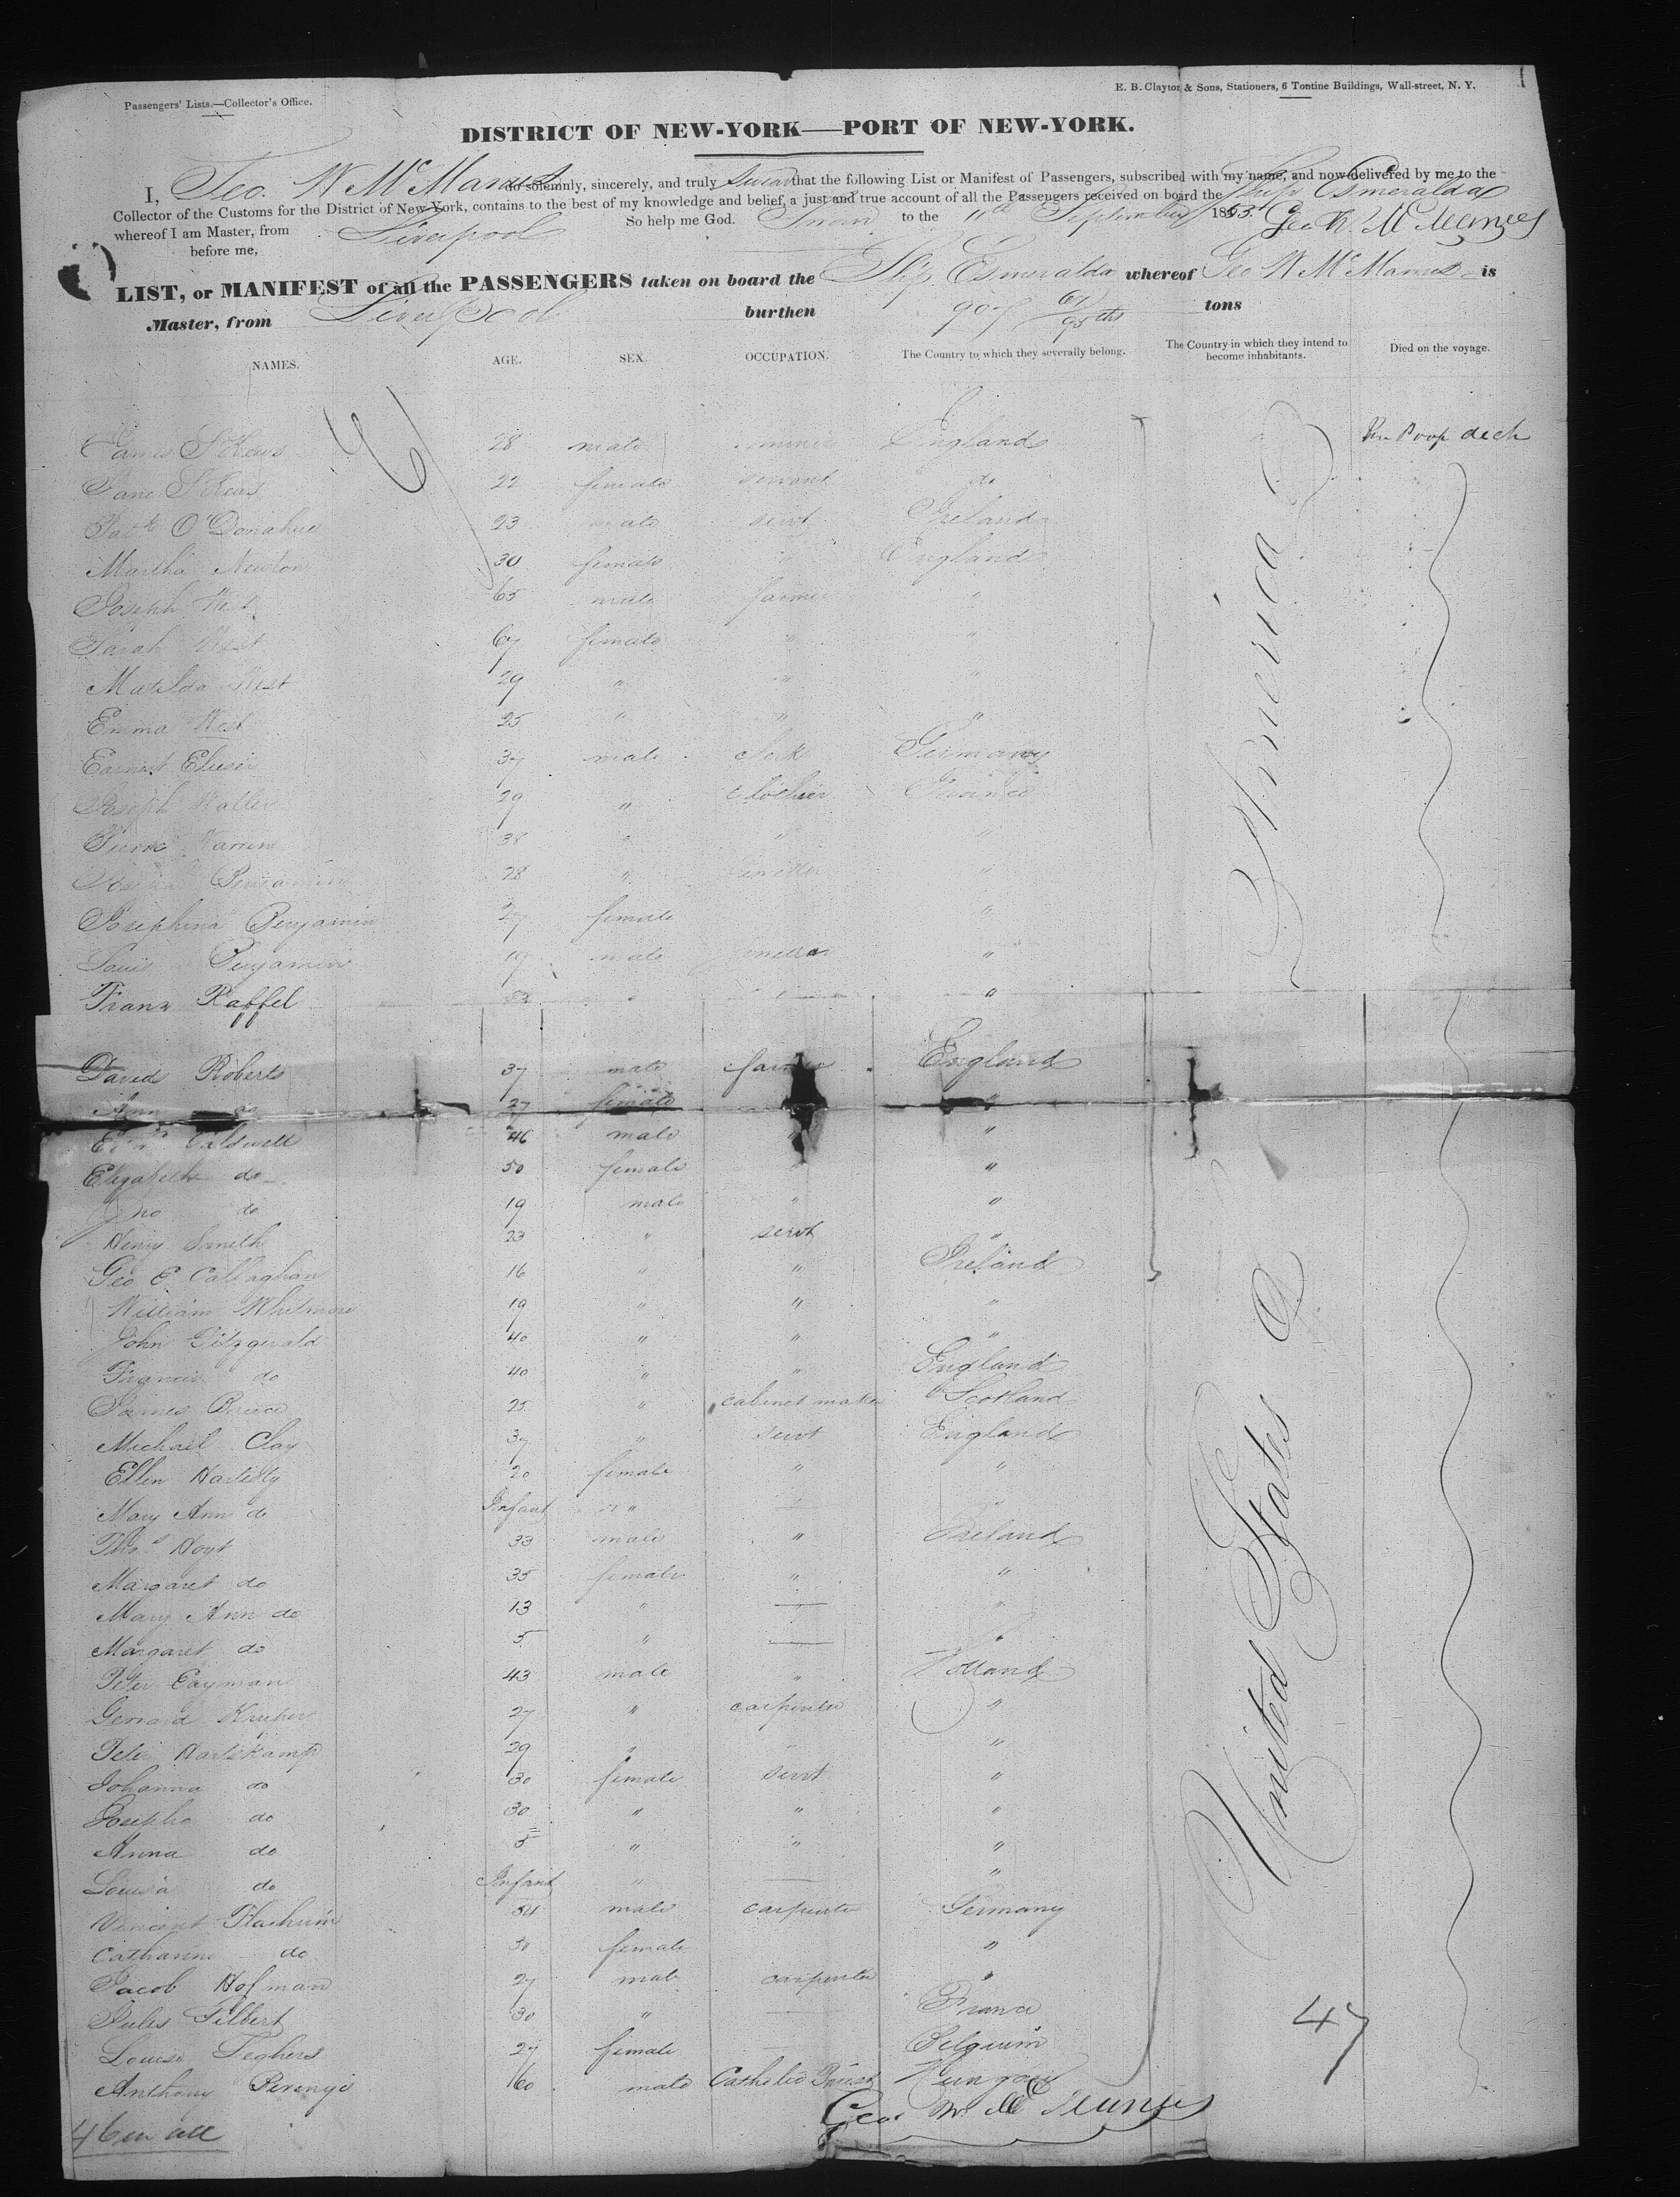 Passengers' Lists.—Collector's Office.
E. B. Clayton & Sons, Stationers, 6 Tontine Buildings, Wall-street, N. Y.
DISTRICT OF NEW-YORK—PORT OF NEW-YORK.
I, Geo. W McManus do solemnly, sincerely, and truly swear that the following List or Manifest of Passengers, subscribed with my name, and now delivered by me to the
Collector of the Customs for the District of New-York, contains to the best of my knowledge and belief, a just and true account of all the Passengers received on board the Ship Esmeralda
whereof I am Master, from Liverpool So help me God. Sworn to the 11th September 1853.
before me,
LIST, or MANIFEST of all the PASSENGERS taken on board the Ship Esmeralda whereof Geo W McManus is
Master, from Liverpool burthen 907 67/95ths tons
NAMES. AGE. SEX. OCCUPATION. The Country to which they severally belong. The Country in which they intend to become inhabitants. Died on the voyage.
James 28 male England Poop deck
Jane 22 female servant do
Patk O'Donahue 23 male servt Ireland
Martha Newton 30 female " England
Joseph West 65 male farmer "
Sarah West 67 female " "
Matilda West 29 " " "
Emma West 25 " " "
Earnest 37 male Germany
Joseph 29 " Clothier France
Pierre 38 " " "
Benjamin 28 " "
Josephina Benjamin 27 female "
Louis Benjamin 19 male "
Franz Raffel "
David Roberts 37 male farmer England
Ann do 27 female "
Caldwell 46 male " "
Elizabeth do 50 female " "
Jno do 19 male " "
Henry Smith 23 " servt "
Geo E Callaghan 16 " " Ireland
William Whitmore 19 " " "
John Fitzgerald 40 " " "
Francis do 40 " " England
James Bruce 25 " cabinet maker Scotland
Michael Clay 37 " servt England
Ellen 20 female " "
Mary Ann do Infant " — "
Thos Hoyt 33 male " Ireland
Margaret do 35 female " "
Mary Ann do 13 " — "
Margaret do 5 " — "
Peter Eayman 43 male " Holland
Gerrard Kuyper 27 " carpenter "
Peter Hartekamp 29 " " "
Johanna do 30 female servt "
Josepha do 30 " " "
Anna do 5 " " "
Louisa do Infant " — "
Vincent male carpenter Germany
Catharine do 50 female "
Jacob Hofman 27 male carpenter "
Jules Gilbert 30 " — France
Louise Seghers 27 female — Belgium
Anthony Perenyi 60 male Catholic Priest Hungary
America
United States
47
46 in all
Geo. W McManus